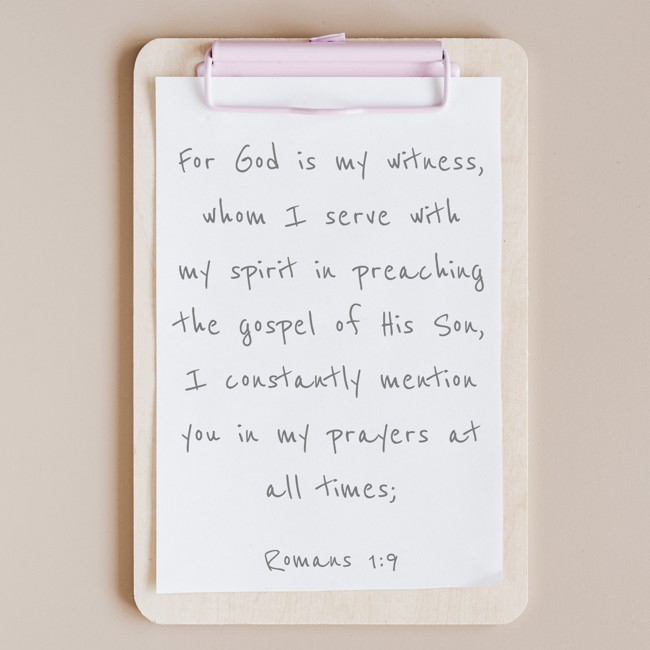 For God is my witness,
whom I serve with
my spirit in preaching
the gospel of His Son,
I constantly mention
you in my prayers at
all times;
Romans 1:9